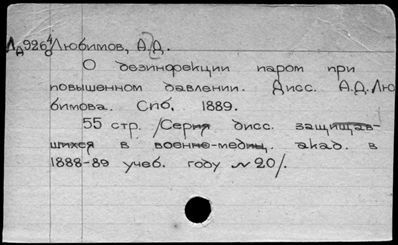 Любимов, А.Д.
О дезинфекции паром при
повышенном давлении. Дисс. А.Д. Лю
бимова. Спб. 1889.
55 стр. /Серия дисс. защищав-
шихся в военно-медиц. акад. в
1888-89 учеб. году №20/.